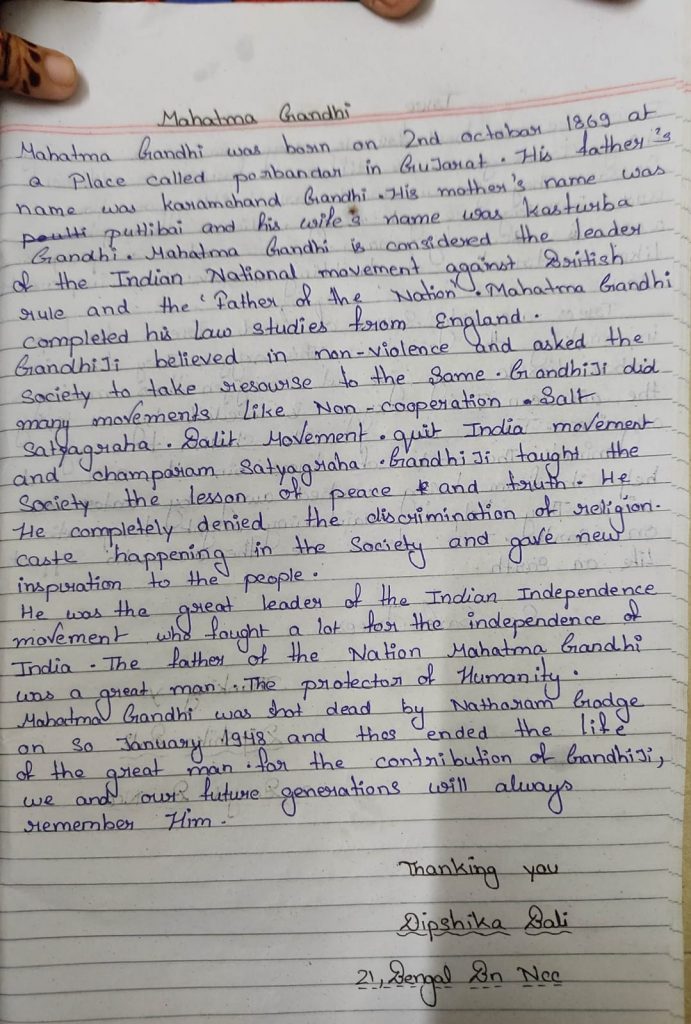 Mahatma Gandhi
Mahatma Gandhi was born on 2nd octobar 1869 at
a Place called porbandar in GuJarat. His father's
name was karamchand Gandhi. His mother's name was
puttibai and his wife's name was kasturba
Gandhi. Mahatma Gandhi is considered the leader
of the Indian National movement against British
rule and the 'Father of the Nation'. Mahatma Gandhi
completed his Law studies from England.
GandhiJi believed in non-violence and asked the
Society to take resourse to the Same. GandhiJi did
many movements like Non-cooperation. Salt
Satyagraha. Dalit Movement. quit India movement
and champaram Satyagraha. GandhiJi taught the
Society the lesson of peace and truth. He
He completely denied the discrimination of religion.
caste happening in the Society and gave new
inspiration to the people.
He was the great leader of the Indian Independence
movement who fought a lot for the independence of
India. The father of the Nation Mahatma Gandhi
was a great man. The protector of Humanity.
Mahatma Gandhi was shot dead by Nathuram Godge
on 30 January 1948 and thos ended the life
of the great man. for the contribution of GandhiJi,
we and our future generations will always
remember Him.
Thanking you
Dipshika Bali
21, Bengal Bn Ncc